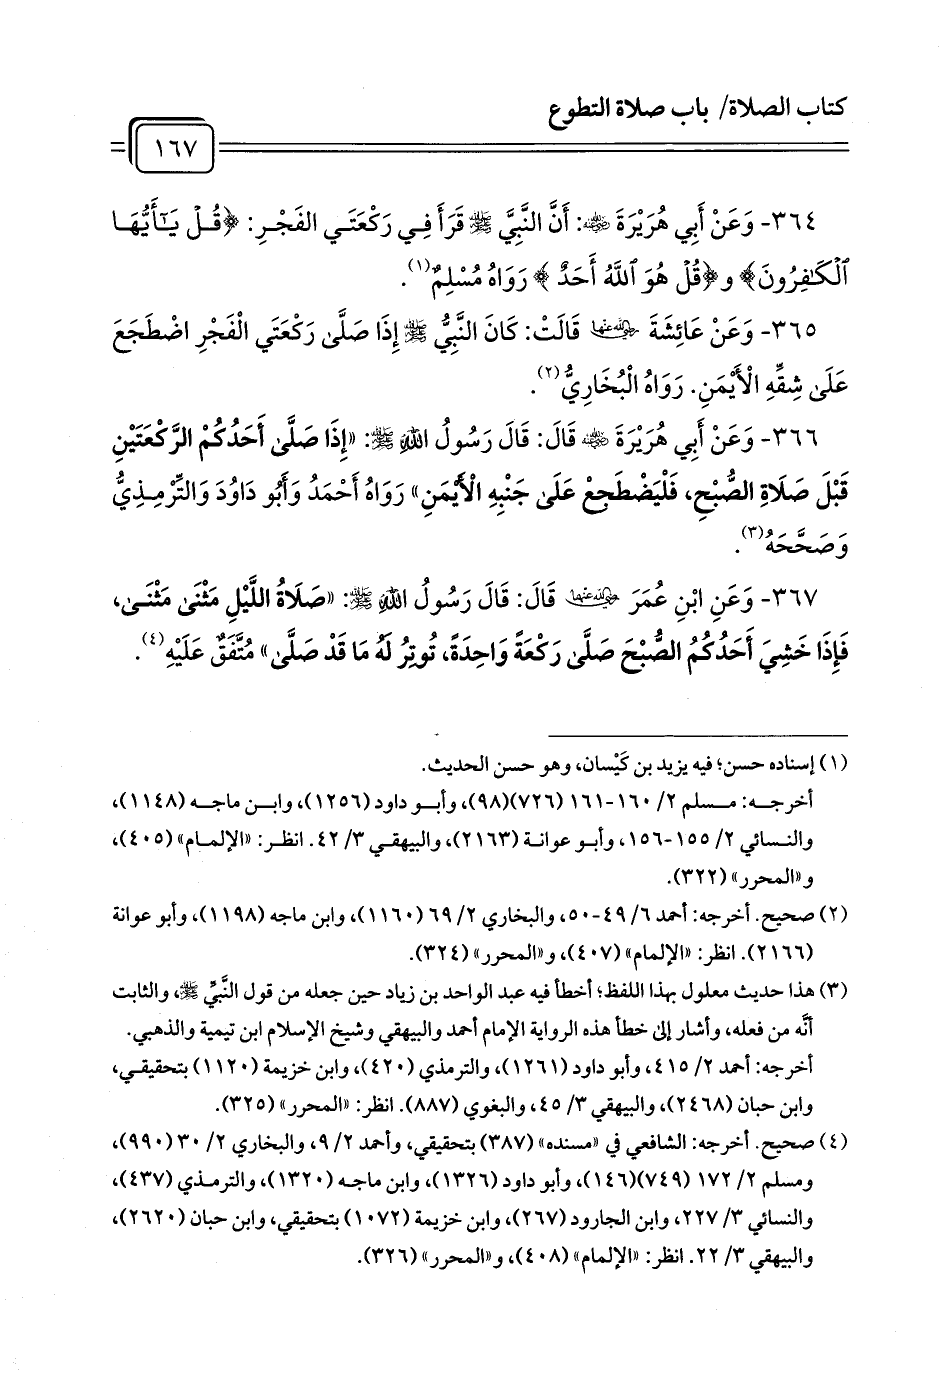 كتاب الصلاة/ باب صلاة التطوع
١٦٧
٣٦٤- وَعَنْ أَبِي هُرَيْرَةَ ﵁: أَنَّ النَّبِيَّ ﷺ قَرَأَ فِي رَكْعَتَي الفَجْرِ: ﴿قُلْ يَـٰٓأَيُّهَا
ٱلْكَـٰفِرُونَ﴾ و﴿قُلْ هُوَ ٱللَّهُ أَحَدٌ﴾ رَوَاهُ مُسْلِمٌ(١).
٣٦٥- وَعَنْ عَائِشَةَ ﵂ قَالَتْ: كَانَ النَّبِيُّ ﷺ إِذَا صَلَّىٰ رَكْعَتَي الْفَجْرِ اضْطَجَعَ
عَلَىٰ شِقِّهِ الْأَيْمَنِ. رَوَاهُ الْبُخَارِيُّ(٢).
٣٦٦- وَعَنْ أَبِي هُرَيْرَةَ ﵁ قَالَ: قَالَ رَسُولُ اللهِ ﷺ: «إِذَا صَلَّىٰ أَحَدُكُمْ الرَّكْعَتَيْنِ
قَبْلَ صَلَاةِ الصُّبْحِ، فَلْيَضْطَجِعْ عَلَىٰ جَنْبِهِ الْأَيْمَنِ» رَوَاهُ أَحْمَدُ وَأَبُو دَاوُدَ وَالتِّرْمِذِيُّ
وَصَحَّحَهُ(٣).
٣٦٧- وَعَنِ ابْنِ عُمَرَ ﵄ قَالَ: قَالَ رَسُولُ اللهِ ﷺ: «صَلَاةُ اللَّيْلِ مَثْنَىٰ مَثْنَىٰ،
فَإِذَا خَشِيَ أَحَدُكُمُ الصُّبْحَ صَلَّىٰ رَكْعَةً وَاحِدَةً، تُوتِرُ لَهُ مَا قَدْ صَلَّىٰ» مُتَّفَقٌ عَلَيْهِ(٤).
(١) إسناده حسن؛ فيه يزيد بن كَيْسان، وهو حسن الحديث.
أخرجه: مسلم ٢/ ١٦٠-١٦١ (٧٢٦)(٩٨)، وأبو داود (١٢٥٦)، وابن ماجه (١١٤٨)،
والنسائي ٢/ ١٥٥-١٥٦، وأبو عوانة (٢١٦٣)، والبيهقي ٣/ ٤٢. انظر: «الإلمام» (٤٠٥)،
و«المحرر» (٣٢٢).
(٢) صحيح. أخرجه: أحمد ٦/ ٤٩-٥٠، والبخاري ٢/ ٦٩ (١١٦٠)، وابن ماجه (١١٩٨)، وأبو عوانة
(٢١٦٦). انظر: «الإلمام» (٤٠٧)، و«المحرر» (٣٢٤).
(٣) هذا حديث معلول بهذا اللفظ؛ أخطأ فيه عبد الواحد بن زياد حين جعله من قول النَّبيِّ ﷺ، والثابت
أنَّه من فعله، وأشار إلى خطأ هذه الرواية الإمام أحمد والبيهقي وشيخ الإسلام ابن تيمية والذهبي.
أخرجه: أحمد ٢/ ٤١٥، وأبو داود (١٢٦١)، والترمذي (٤٢٠)، وابن خزيمة (١١٢٠) بتحقيقي،
وابن حبان (٢٤٦٨)، والبيهقي ٣/ ٤٥، والبغوي (٨٨٧). انظر: «المحرر» (٣٢٥).
(٤) صحيح. أخرجه: الشافعي في «مسنده» (٣٨٧) بتحقيقي، وأحمد ٢/ ٩، والبخاري ٢/ ٣٠ (٩٩٠)،
ومسلم ٢/ ١٧٢ (٧٤٩)(١٤٦)، وأبو داود (١٣٢٦)، وابن ماجه (١٣٢٠)، والترمذي (٤٣٧)،
والنسائي ٣/ ٢٢٧، وابن الجارود (٢٦٧)، وابن خزيمة (١٠٧٢) بتحقيقي، وابن حبان (٢٦٢٠)،
والبيهقي ٣/ ٢٢. انظر: «الإلمام» (٤٠٨)، و«المحرر» (٣٢٦).